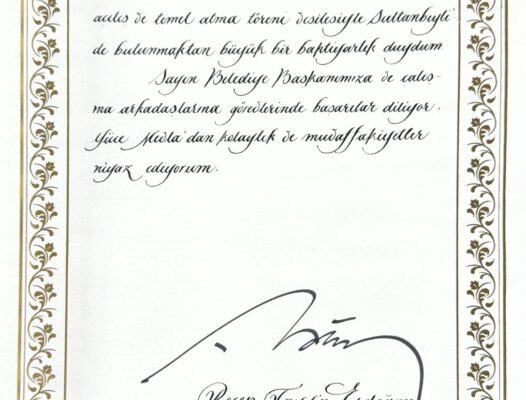 açılış ve temel atma töreni vesilesiyle Sultanbeyli'
de bulunmaktan büyük bir bahtiyarlık duydum
Sayın Belediye Başkanımıza ve çalış-
ma arkadaşlarına görevlerinde başarılar diliyor,
Yüce Mevla'dan kolaylık ve muvaffakiyetler
niyaz ediyorum.
Recep Tayyip Erdoğan